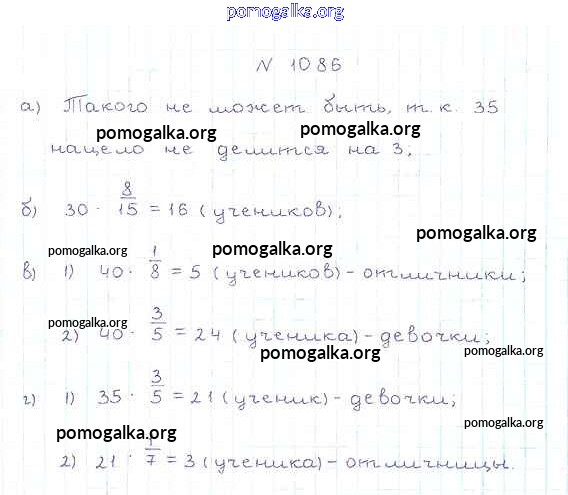 pomogalka.org
N 1086
а) Такого не может быть, т.к. 35
pomogalka.org pomogalka.org
нацело не делится на 3;
б) 30 · 8/15 = 16 (учеников);
pomogalka.org
pomogalka.org pomogalka.org
в) 1) 40 · 1/8 = 5 (учеников) - отличники;
pomogalka.org
2) 40 · 3/5 = 24 (ученика) - девочки;
pomogalka.org pomogalka.org
г) 1) 35 · 3/5 = 21 (ученик) - девочки;
pomogalka.org
pomogalka.org
2) 21 · 1/7 = 3 (ученика) - отличницы.